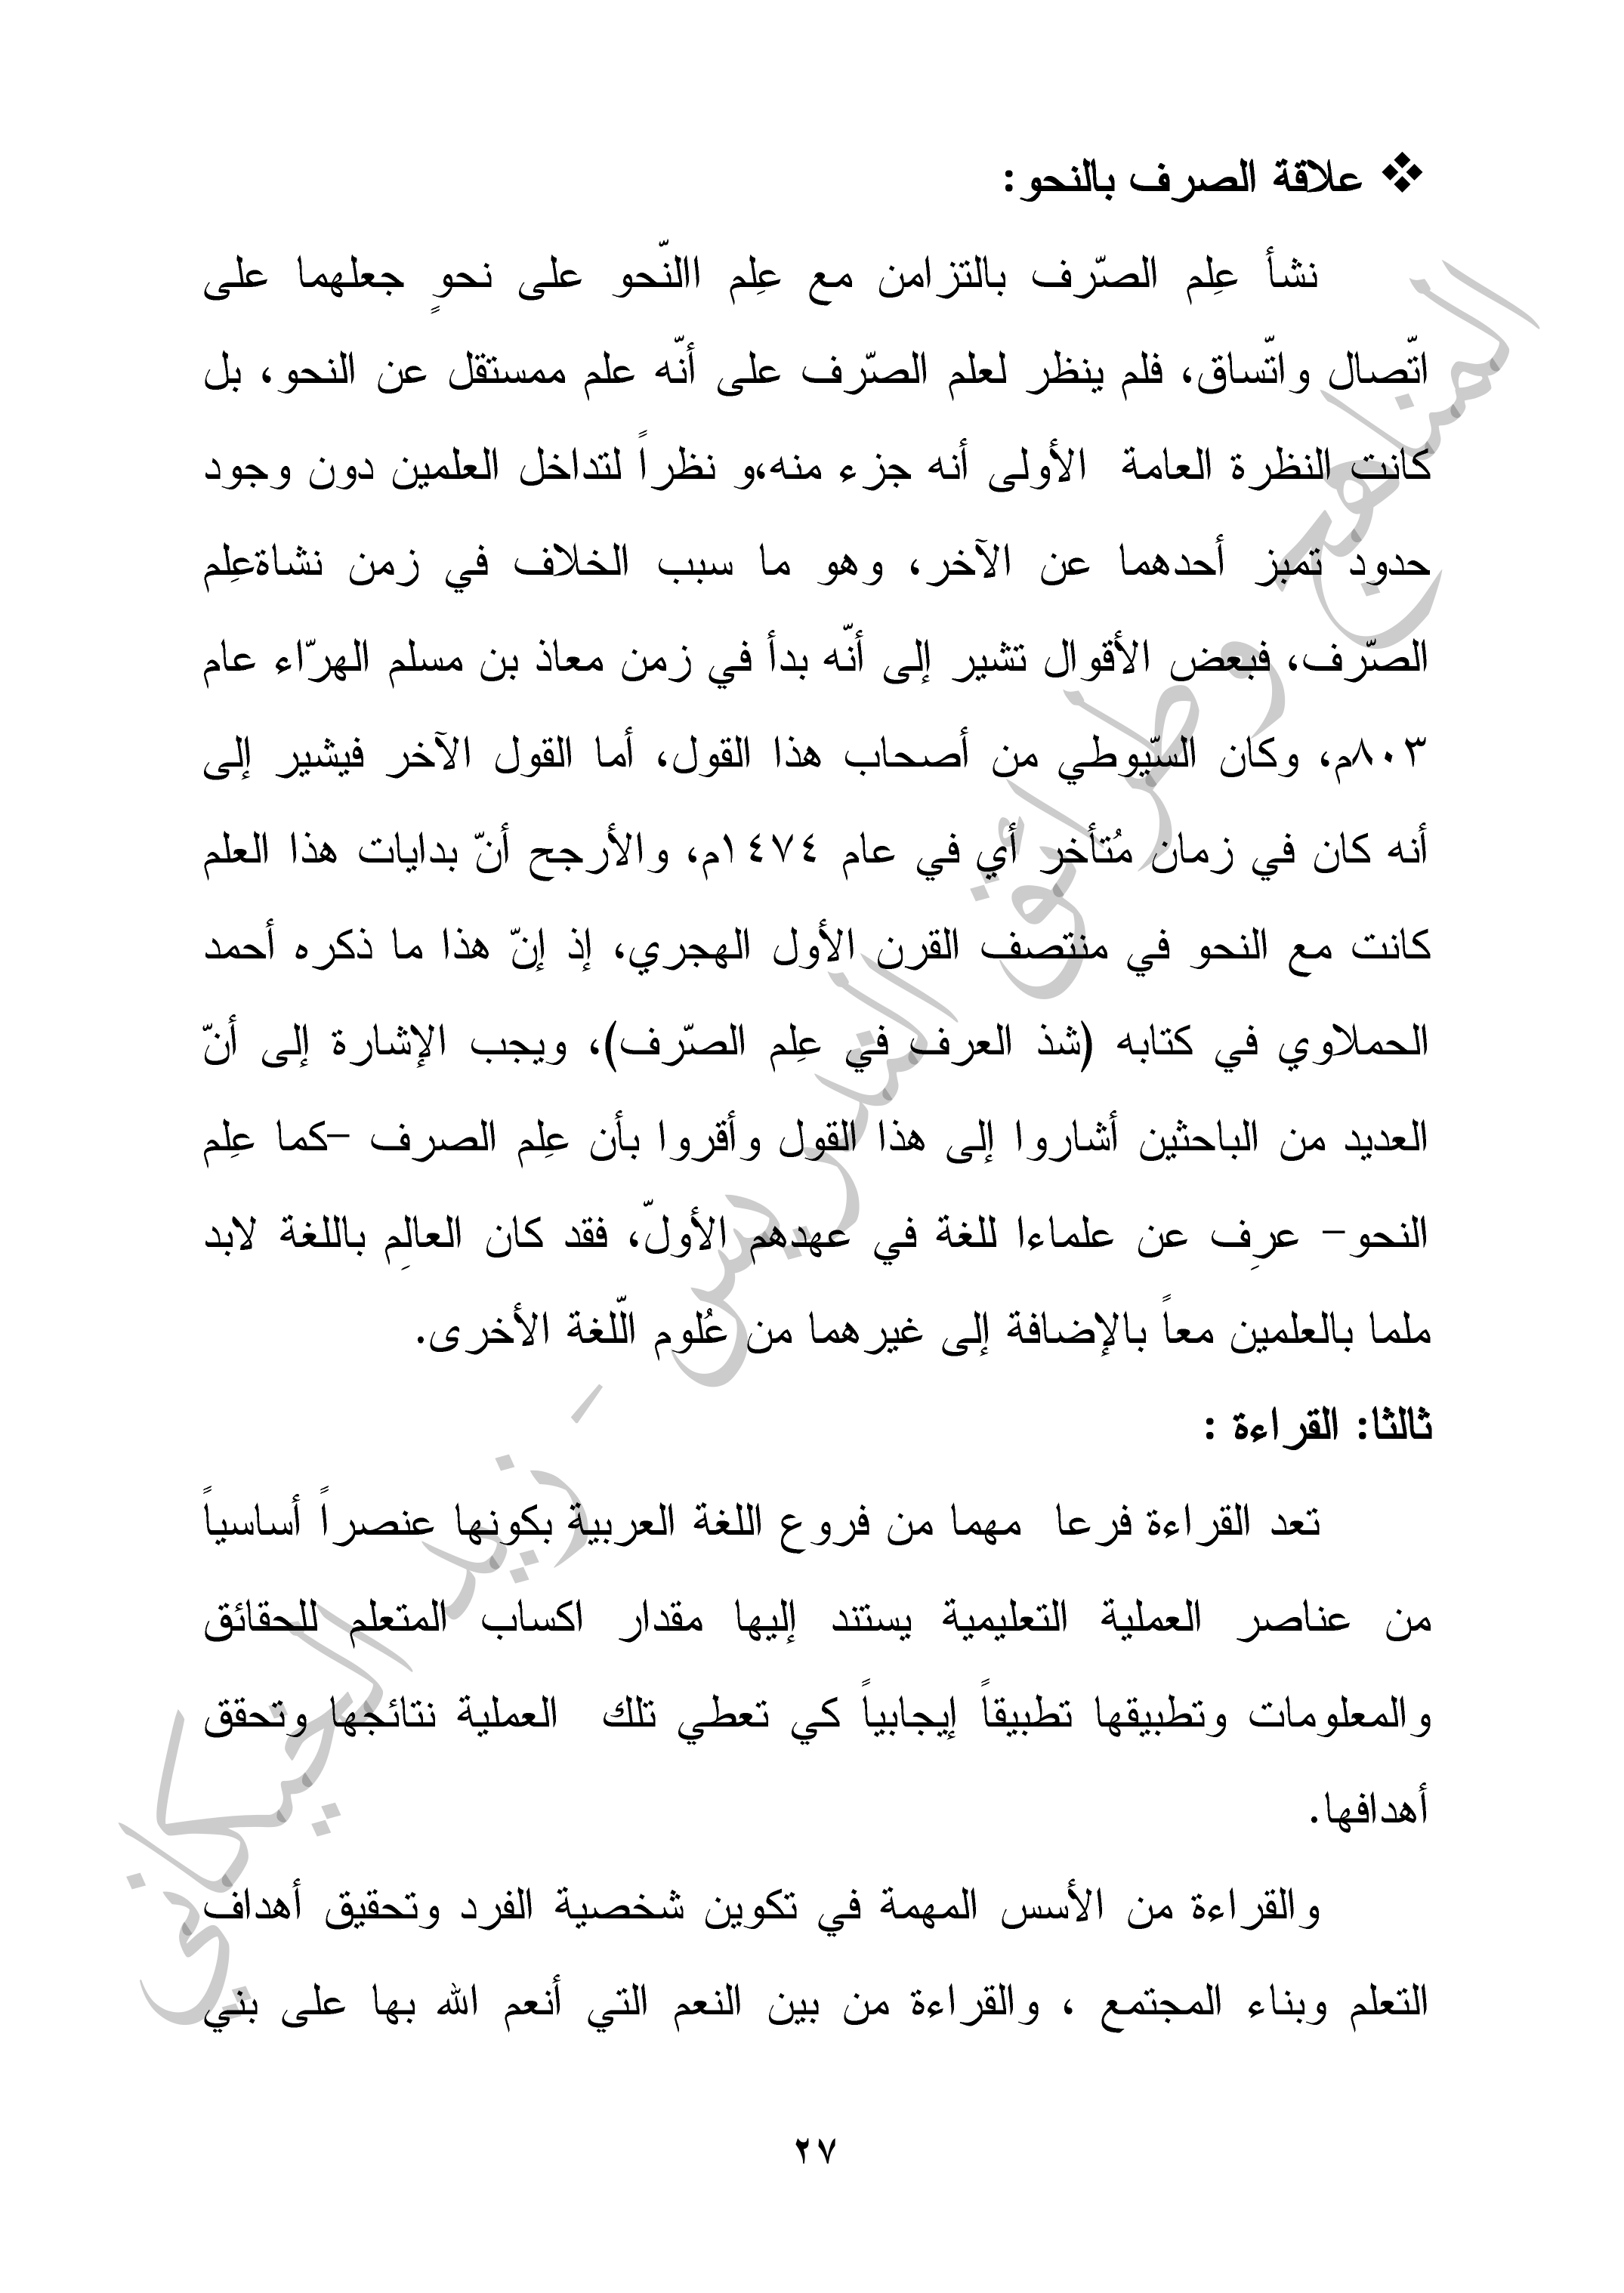 ❖ علاقة الصرف بالنحو:
نشأ عِلم الصّرف بالتزامن مع عِلم االنّحو على نحوٍ جعلهما على
اتّصال واتّساق، فلم ينظر لعلم الصّرف على أنّه علم ممستقل عن النحو، بل
كانت النظرة العامة الأولى أنه جزء منه،و نظراً لتداخل العلمين دون وجود
حدود تمبز أحدهما عن الآخر، وهو ما سبب الخلاف في زمن نشاةعِلم
الصّرف، فبعض الأقوال تشير إلى أنّه بدأ في زمن معاذ بن مسلم الهرّاء عام
٨٠٣م، وكان السّيوطي من أصحاب هذا القول، أما القول الآخر فيشير إلى
أنه كان في زمان مُتأخر أي في عام ١٤٧٤م، والأرجح أنّ بدايات هذا العلم
كانت مع النحو في منتصف القرن الأول الهجري، إذ إنّ هذا ما ذكره أحمد
الحملاوي في كتابه (شذ العرف في عِلم الصّرف)، ويجب الإشارة إلى أنّ
العديد من الباحثين أشاروا إلى هذا القول وأقروا بأن عِلم الصرف –كما عِلم
النحو– عرِف عن علماءا للغة في عهدهم الأولّ، فقد كان العالِم باللغة لابد
ملما بالعلمين معاً بالإضافة إلى غيرهما من عُلوم الّلغة الأخرى.
ثالثا: القراءة :
تعد القراءة فرعا مهما من فروع اللغة العربية بكونها عنصراً أساسياً
من عناصر العملية التعليمية يستند إليها مقدار اكساب المتعلم للحقائق
والمعلومات وتطبيقها تطبيقاً إيجابياً كي تعطي تلك العملية نتائجها وتحقق
أهدافها.
والقراءة من الأسس المهمة في تكوين شخصية الفرد وتحقيق أهداف
التعلم وبناء المجتمع ، والقراءة من بين النعم التي أنعم الله بها على بني
٢٧
المناهج وطرائق التدريس - زيد الخيكاني